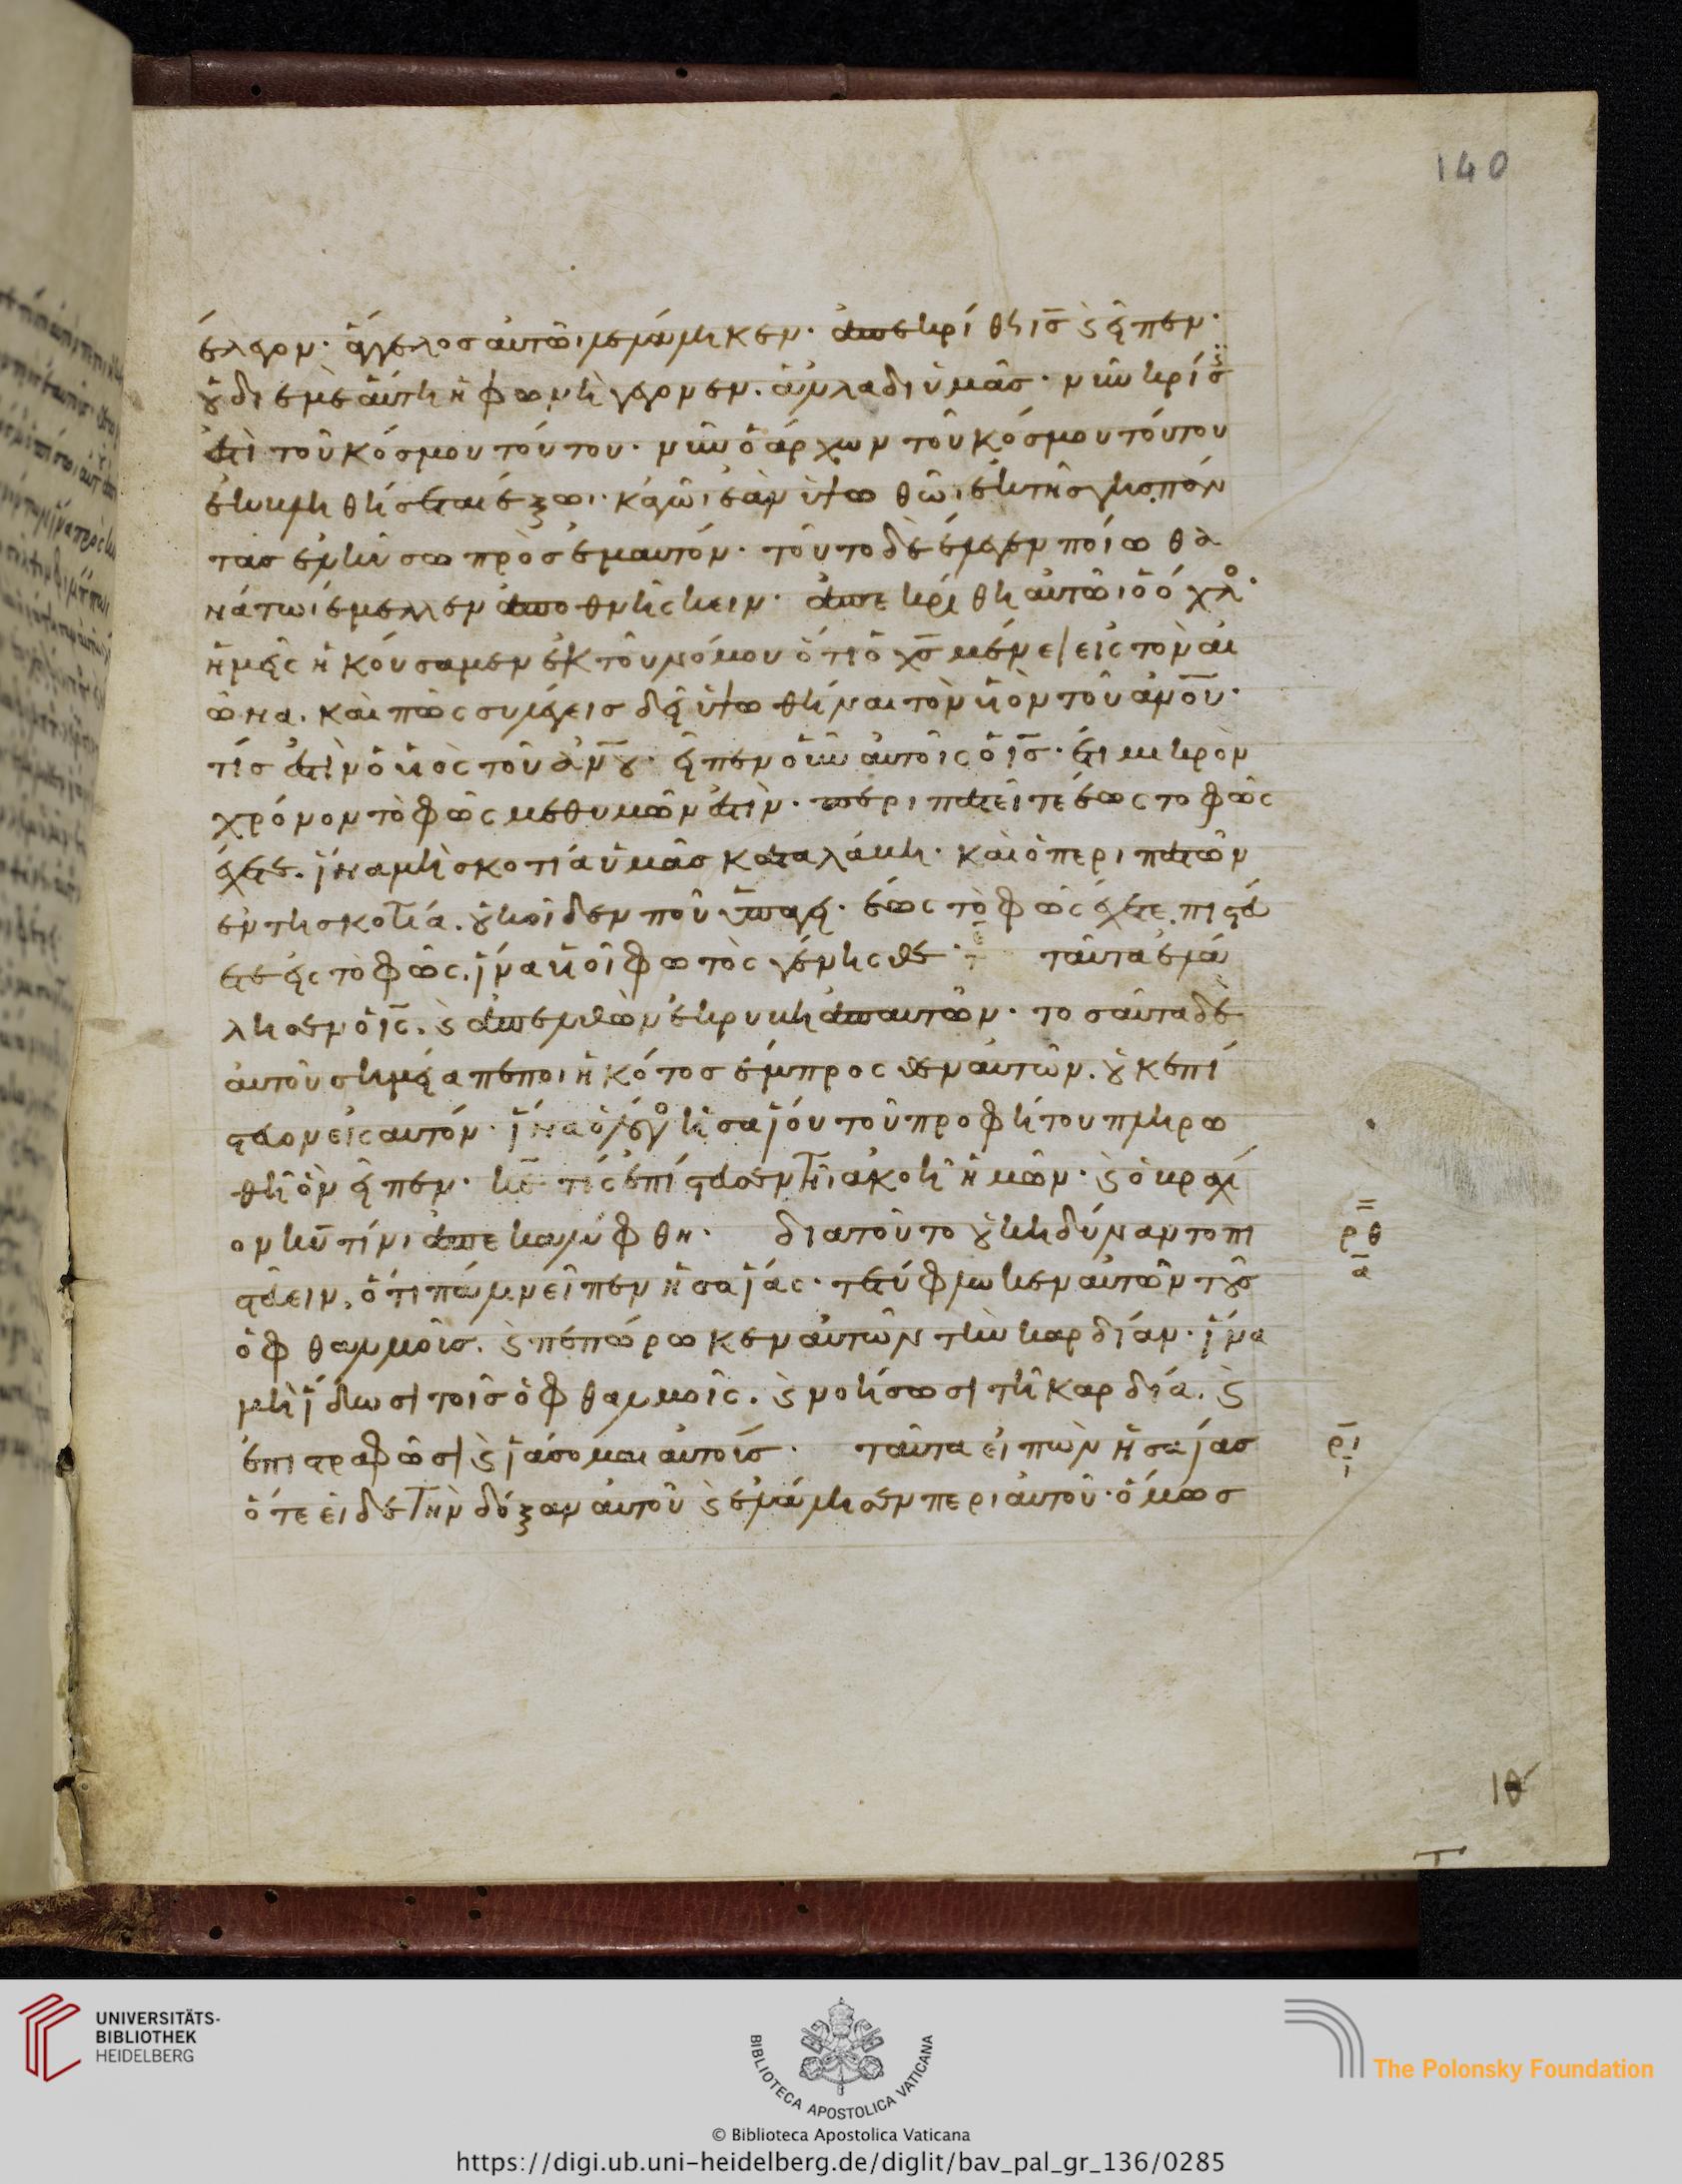 140
ἔλεγον· ἄγγελος αὐτῶι λελάληκεν· ἀπεκρίθη ις̅ ϗ εἶπεν·
ȣ̓ δι ἐμὲ αὕτη ἡ φωνὴ γέγονεν. ἀλλα δι ὑμᾶς· νῦν κρίσ
ἐστὶ τοῦ κόσμου τούτου· νῦν ὁ ἄρχων τοῦ κόσμου τούτου
ἐκβληθήσεται ἔξωι· κἀγῶι ἐὰν ὑψωθῶι ἐκ τῆς γῆς. πάν
τας ἑλκύσω πρὸς ἐμαυτόν· τοῦτο δὲ ἔλεγεν ποίω θα
νάτωι ἔμελλεν ἀποθνήσκειν· ἀπεκρίθη αὐτῶι ὁ ὄχλο·
ἡμεῖς ἠκούσαμεν ἐκ τοῦ νόμου ὅτι ὁ χς̅ μένει εἰς τὸν αἰ
ῶνα. καὶ πῶς σὺ λέγεις δεῖ ὑψωθῆναι τὸν υἱὸν τοῦ ἀνο̅υ̅·
τίς ἐστὶν ὁ υἱὸς τοῦ ἀν̅ȣ· εἶπεν οὖν αὐτοῖς ὁ ις̅· ἔτι μικρὸν
χρόνον τὸ φῶς μεθ υμῶν ἐστὶν· περιπατεῖτε ἕως το φῶς
ἔχετε. ἵνα μὴ σκοτία ὑμᾶς καταλάβη· καὶ ὁ περιπατῶν
εν τη σκοτία. ȣ̓κ οἶδεν ποῦ ὑπάγει· ἕως τὸ φῶς ἔχετε. πιστεύ
ετε εἰς τὸ φῶς. ἵνα υἱοὶ φωτὸς γένησθε· ταῦτα ἐλά
λησεν ὁ ις̅. ϗ ἀπελθὼν ἐκρύβη ἀπ αὐτῶν· τοσαῦτα δὲ
αὐτοῦ σημεῖα πεποιηκότος ἔμπροσθεν αὐτῶν. ȣ̓κ ἐπί
στευον εἰς αυτόν· ἵνα ὁ λόγο ἠσαΐου τοῦ προφήτου πληρω
θῆ ὃν εἶπεν· κε̅ τίς ἐπίστευσεν τῆ ἀκοῆ ἡμῶν· ϗ ὁ βραχί
ον κυ̅ τίνι ἀπεκαλύφθη· διατοῦτο ȣ̓κ ἠδύναντο πι
στεύειν. ὅτι πάλιν εἶπεν ἡσαΐας· τετύφλωκεν αὐτῶν τȣ̀ς
ὀφθαλμοὺς. ϗ πεπώρωκεν αὐτῶν τὴν καρδίαν· ἵνα
μὴ ἴδωσι τοῖς ὀφθαλμοῖς. ϗ νοήσωσι τῆ καρδία. ϗ
ἐπιστραφῶσι ϗ ἰάσομαι αὐτοὺς· ταῦτα εἰπὼν ἡσαΐας
ὅτε εἶδε τὴν δόξαν αὐτοῦ ϗ ἐλάλησεν περι αὐτοῦ· ὅμως
ρθ
α
ρι
ι
UNIVERSITÄTS-
BIBLIOTHEK
HEIDELBERG
BIBLIOTECA APOSTOLICA VATICANA
The Polonsky Foundation
© Biblioteca Apostolica Vaticana
https://digi.ub.uni-heidelberg.de/diglit/bav_pal_gr_136/0285